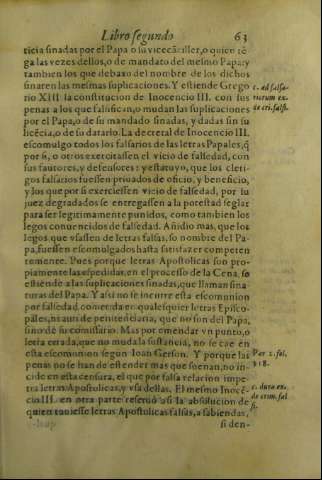 Libro segundo 63
ticia sinadas por el Papa o su vicecãciller, o quien tẽ
ga las vezes dellos, o de mandato del mesmo Papa: y
tambien los que debaxo del nombre de los dichos
sinaren las mesmas suplicaciones. Y estiende Grego
rio XIII la constitucion de Inocencio III. con sus
penas a los que falsifican, o mudan las suplicaciones
por el Papa, o de su mandado sinadas, y dadas sin su
licẽcia, o de su datario. La decretal de Inocencio III.
escomulgo todos los falsarios de las letras Papales, q̃
por si, o otros exercitassen el vicio de falsedad, con
sus fautores, y defensores: y estatuyo, que los cleri-
gos falsarios fuessen priuados de oficio, y beneficio,
y los que por si exerciessen vicio de falsedad, por su
juez degradados se entregassen a la potestad seglar
para ser legitimamente punidos, como tambien los
legos conuencidos de falsedad. Añidio mas, que los
legos que vsassen de letras falsas, so nombre del Pa-
pa, fuessen escomulgados hasta satisfazer competen
temente. Pues porque letras Apostolicas son pro-
piamente las espedidas, en el processo de la Cena, so
estiende a las suplicaciones sinadas, que llaman sina-
turas del Papa. Y assi no se incurre esta escomunion
por falsedad cometida en qualesquier letras Episco-
pales, ni aun de penitẽciaria, que no son del Papa,
sino de su comissario. Mas por emendar vn punto, o
letra errada, que no muda la sustancia, no se cae en
esta escomunion segun Ioan Gerson. Y porque las
penas no se han de estender mas que suenan, no in-
cide en esta censura, el que por falsa relacion impe-
tra letras Apostolicas, y vsa dellas. El mesmo Inocẽ-
cio III. en otra parte reseruò a si la absolucion de
quien tuuiesse letras Apostolicas falsas, a sabiendas,
si den-
c. ad falsa-
riorum ex-
te cri. falsi.
Par 2. fol.
318.
c. dura ex.
de crim. fal
si.